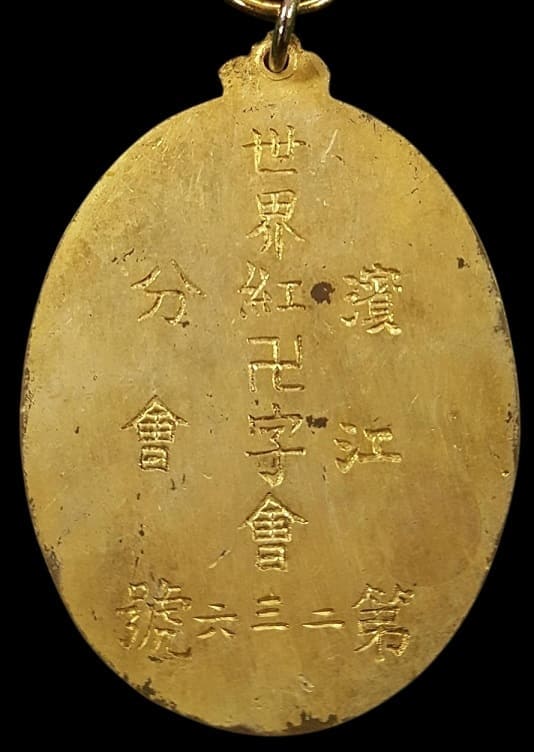 濱江
世界紅卍字會
分會
第二三六號